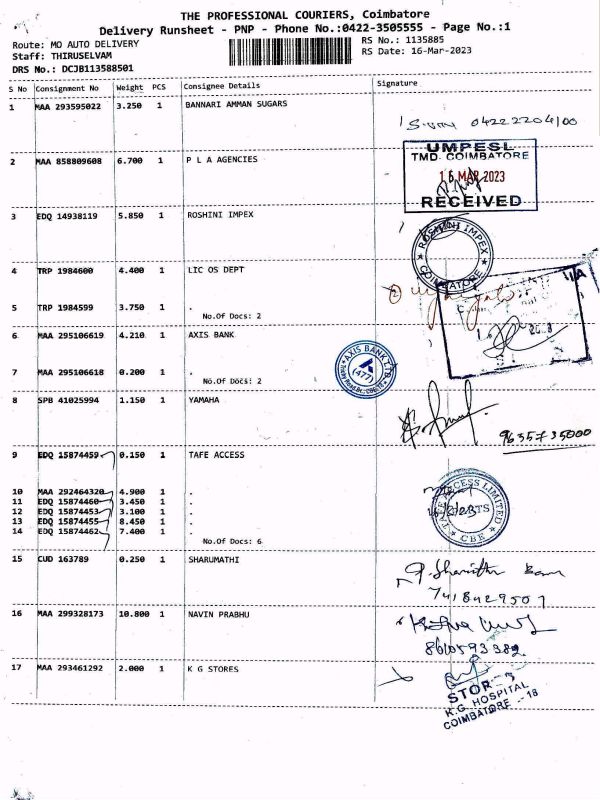 THE PROFESSIONAL COURIERS, Coimbatore
Delivery Runsheet - PNP - Phone No.:0422-3505555 - Page No.:1
Route: MO AUTO DELIVERY RS No.: 1135885
Staff: THIRUSELVAM RS Date: 16-Mar-2023
DRS No.: DCJB113588501
S No Consignment No Weight PCS Consignee Details Signature
1 MAA 293595022 3.250 1 BANNARI AMMAN SUGARS
04222204100
2 MAA 858809608 6.700 1 P L A AGENCIES
UMPESL
TMD. COIMBATORE
16 MAR 2023
RECEIVED
3 EDQ 14938119 5.850 1 ROSHINI IMPEX
ROSHINI IMPEX
COIMBATORE
4 TRP 1984600 4.400 1 LIC OS DEPT
5 TRP 1984599 3.750 1 .
No.Of Docs: 2
6 MAA 295106619 4.210 1 AXIS BANK
AXIS BANK LTD.
(477)
7 MAA 295106618 0.200 1 .
No.Of Docs: 2
8 SPB 41025994 1.150 1 YAMAHA
9635735000
9 EDQ 15874459 0.150 1 TAFE ACCESS
10 MAA 292464320 4.900 1 .
11 EDQ 15874460 3.450 1 .
12 EDQ 15874453 3.100 1 .
13 EDQ 15874455 8.450 1 .
14 EDQ 15874462 7.400 1 .
No.Of Docs: 6
TAFE ACCESS LIMITED
CBE
15 CUD 163789 0.250 1 SHARUMATHI
7418429507
16 MAA 299328173 10.800 1 NAVIN PRABHU
8610593382
17 MAA 293461292 2.000 1 K G STORES
STORES
K.G. HOSPITAL
COIMBATORE - 18